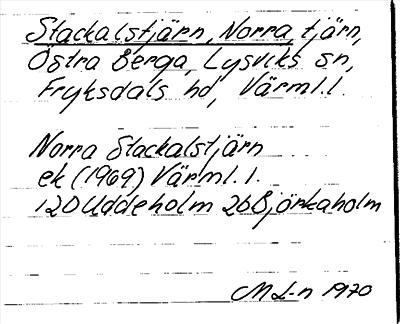 Stackalstjärn, Norra, tjärn,
Östra Berga, Lysviks sn,
Fryksdals hd, Värml.l.
Norra Stackalstjärn
ek (1969) Värml. l.
12D Uddeholm 2b Björkaholm
M L-n 1970